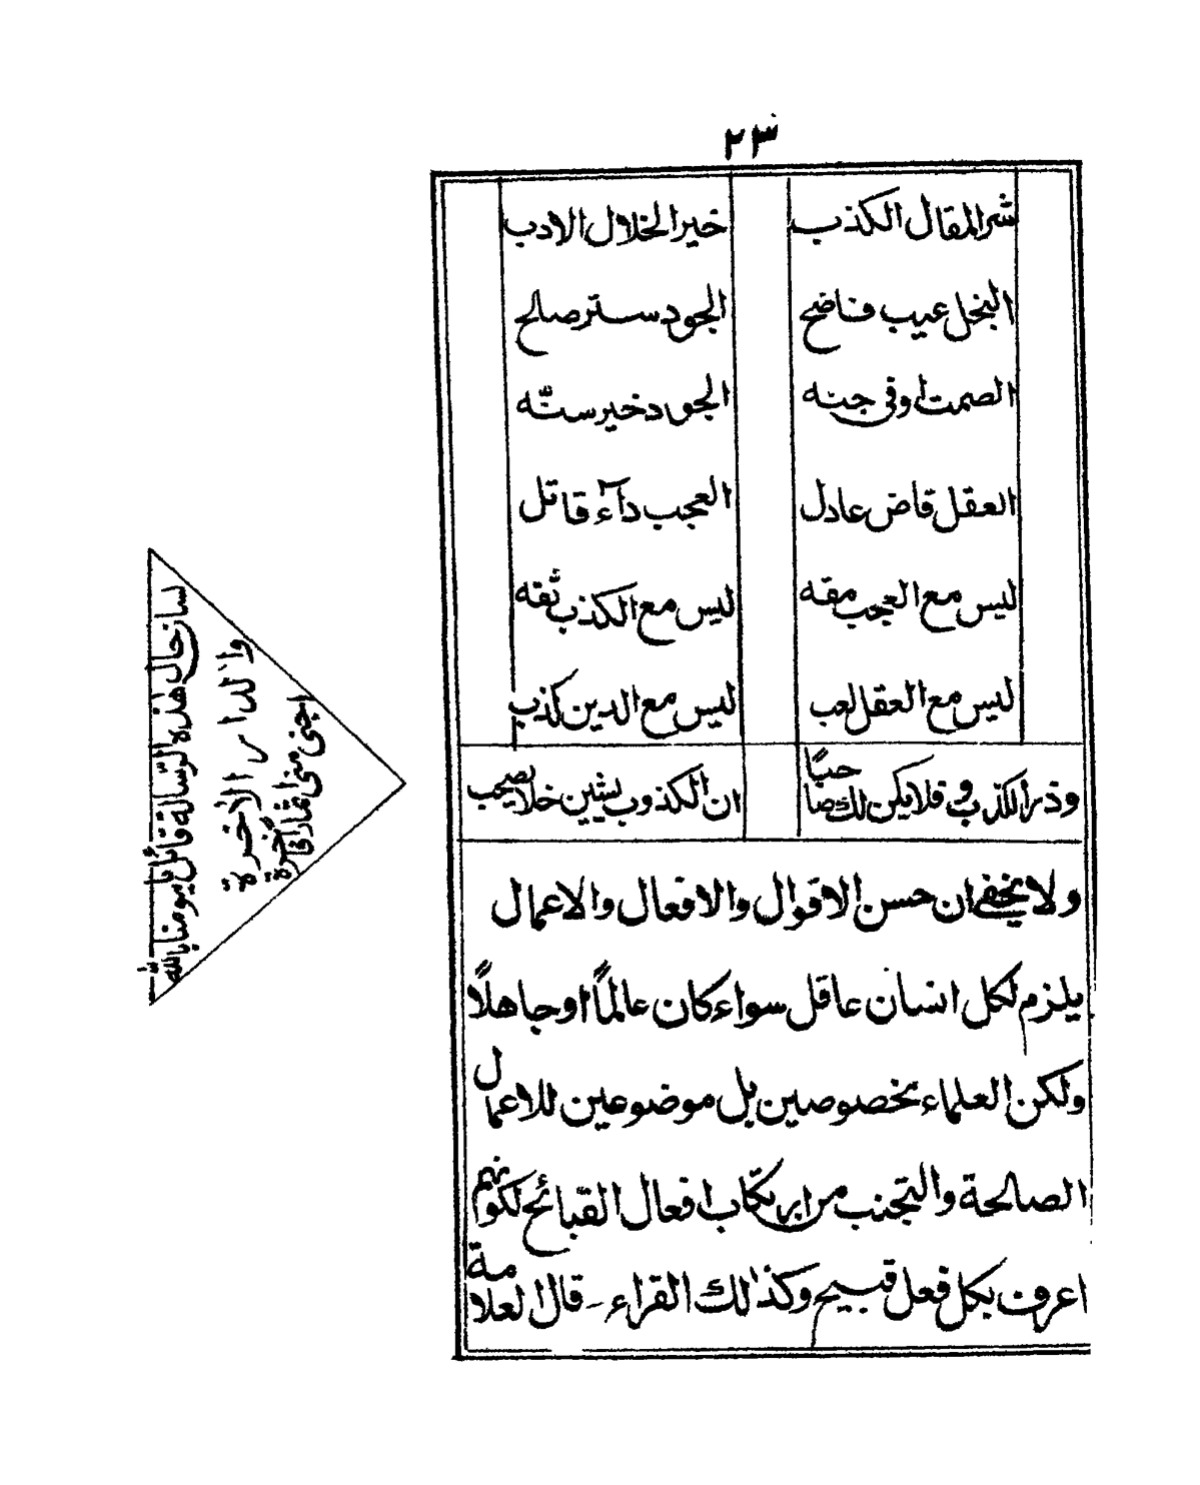 ٢٣
شر المقال الكذب خير الخلال الادب
البخل عيب فاضح الجود ستر صالح
الصمت اوقى جنه الجود خير سنّه
العقل قاض عادل العجب دآء قاتل
ليس مع العجب مقه ليس مع الكذب ثقه
ليس مع العقل لعب ليس مع الدين كذب
وذر الكذب فلا يكن لك صاحبًا ان الكذوب يشين خلا يصحب
ولا يخفى ان حسن الاقوال والافعال والاعمال
يلزم لكل انسان عاقل سواء كان عالمًا او جاهلًا
ولكن العلماء مخصوصين بل موضوعين للاعمال
الصالحة والتجنب من ارتكاب افعال القبائح لكونهم
اعرف بكل فعل قبيح وكذلك القراء - قال العلامة
لسان حال هذه الرّسالة قائل يا مومنا بالله
والدار الأخرة
اجنى منى اثمارا